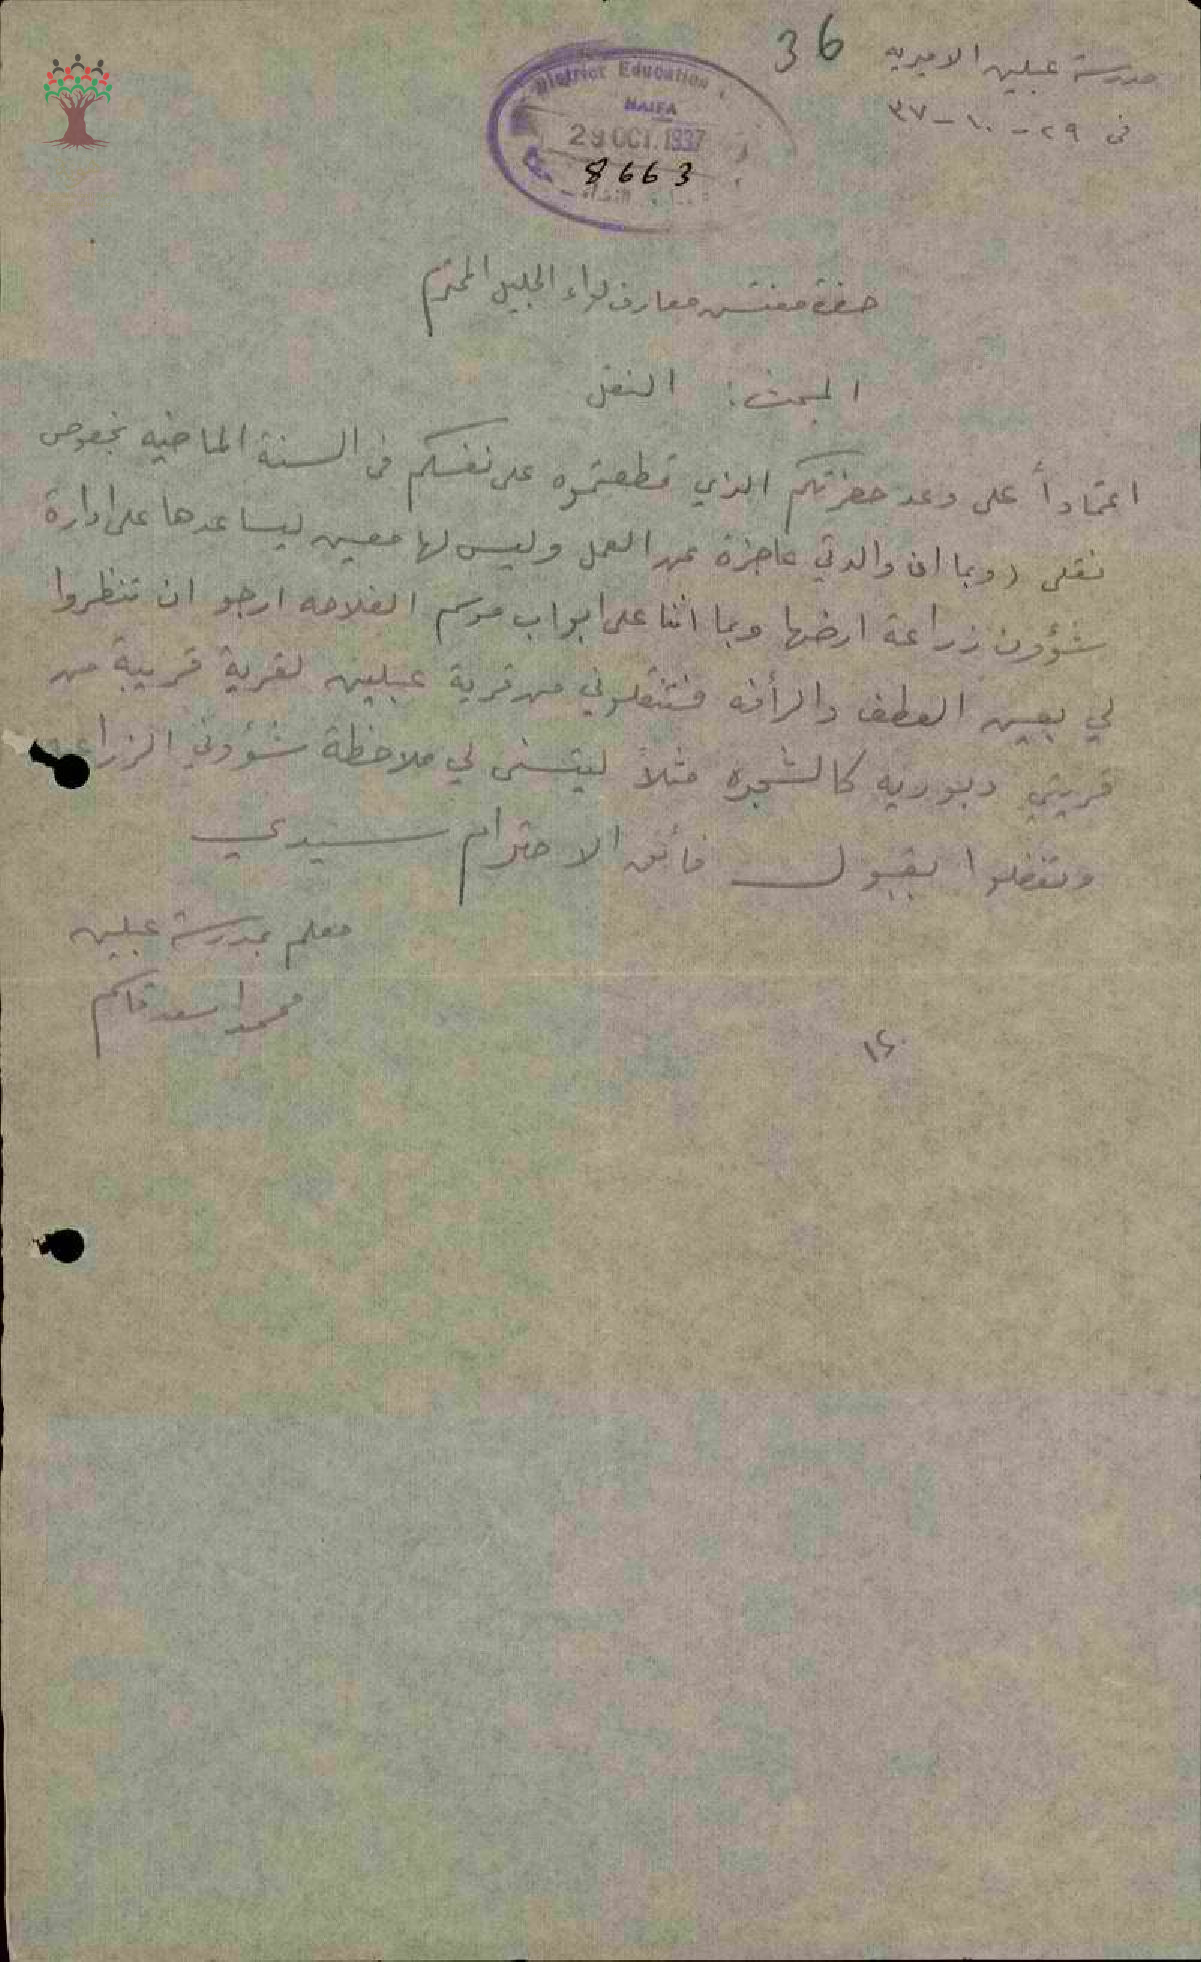 مدرسة عبلين الاميريه
36
في ٢٩-١٠-٣٧
District Education
HAIFA
29 OCT. 1937
8663
حضرة مفتش معارف لواء الجليل المحترم
المبحث: النقل
اعتماداً على وعد حضرتكم الذي قطعتموه على نفسكم في السنة الماضيه بخصوص
نقلي (وبما ان والدتي عاجزة عن العمل وليس لها معين ليساعدها على ادارة
شؤون زراعة ارضها وبما اننا على ابواب موسم الفلاحه ارجو ان تنظروا
لي بعين العطف والرأفه فتنقلوني من قرية عبلين لقرية قريبة من
قريتي دبوريه كالشجره مثلاً ليتسنى لي ملاحظة شؤوني الزراعيه
وتفضلوا بقبول فائق الاحترام سيدي
معلم بمدرسة عبلين
محمد اسعد قاسم